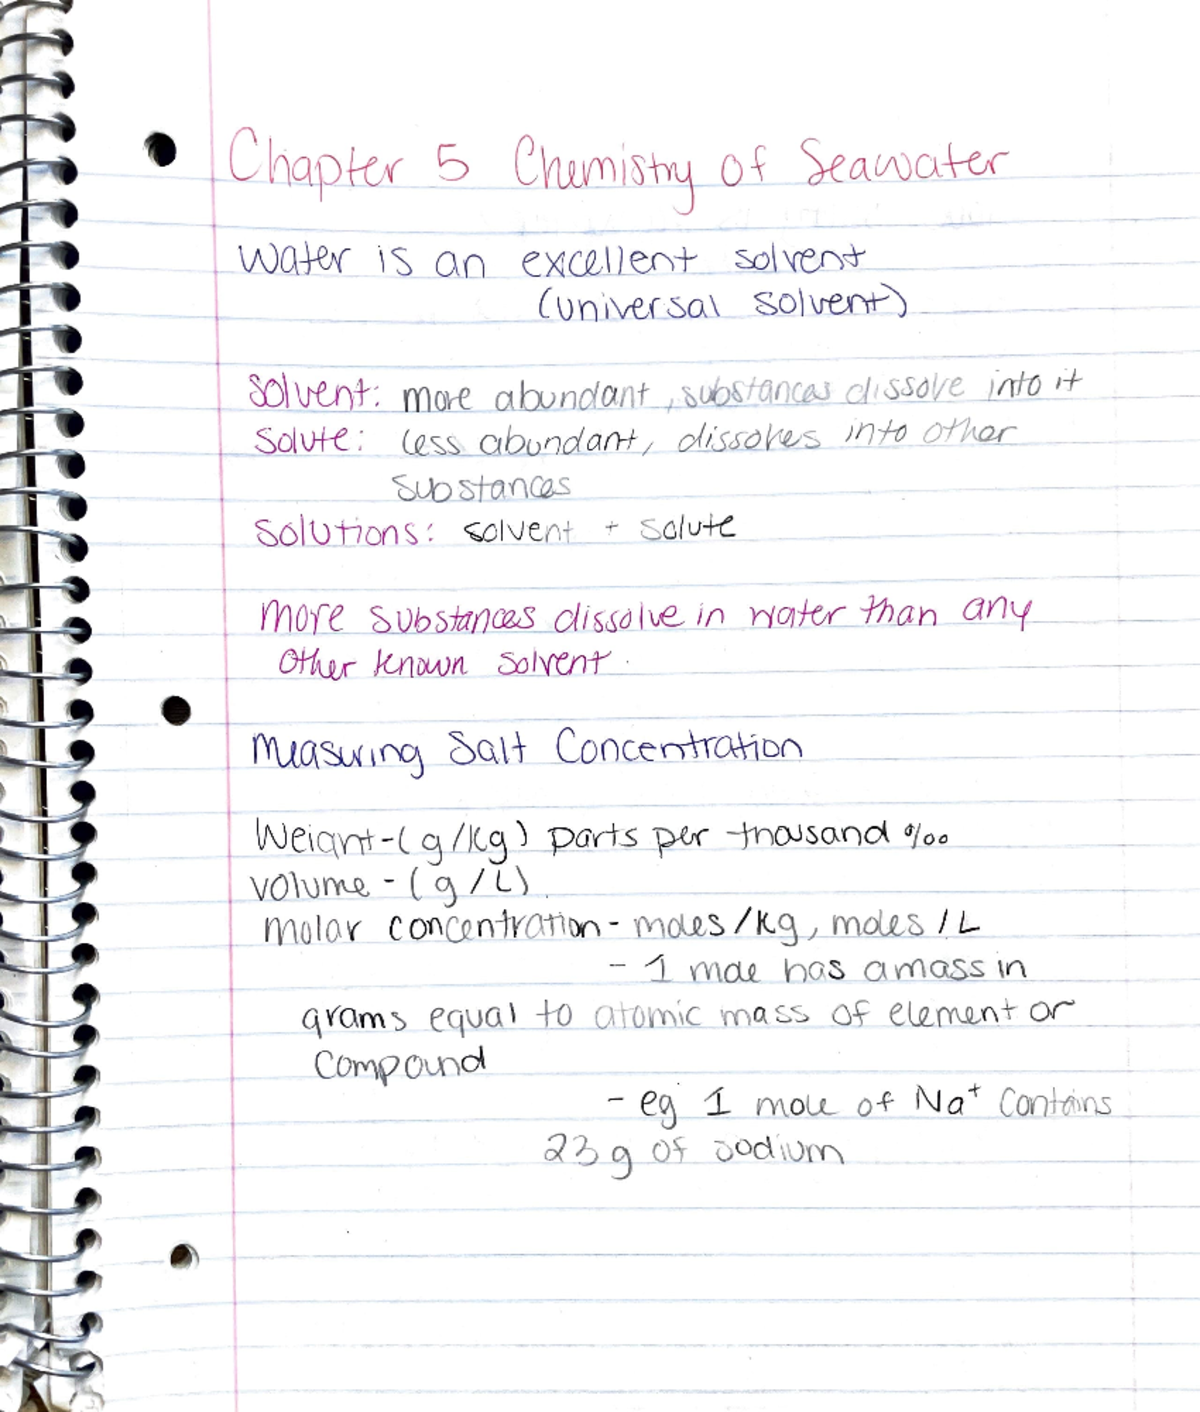 Chapter 5 Chemistry of Seawater
Water is an excellent solvent
(universal solvent)
Solvent: more abundant, substances dissolve into it
Solute: less abundant, dissolves into other
substances
Solutions: solvent + solute
More substances dissolve in water than any
other known solvent.
Measuring Salt Concentration
Weight-(g/kg) parts per thousand ‰
volume - (g/L)
Molar concentration - moles/kg, moles/L
- 1 mole has a mass in
grams equal to atomic mass of element or
compound
- eg 1 mole of Na⁺ contains
23g of sodium